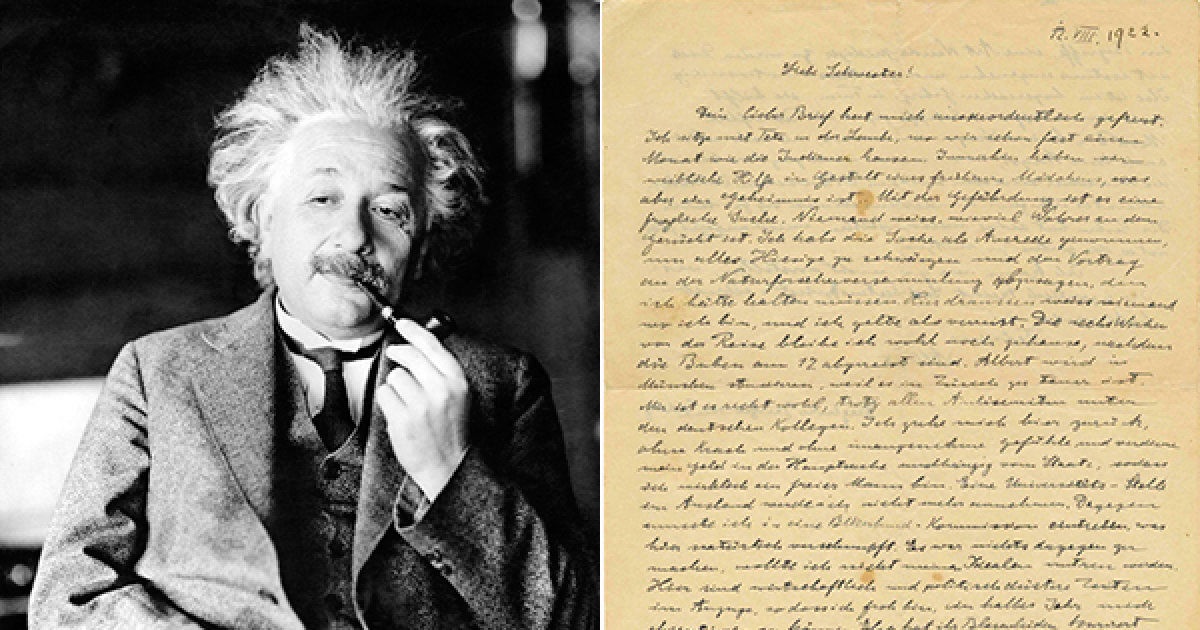 12. VIII. 1922.
Liebe Schwester!
Dein lieber Brief hat mich ausserordentlich gefreut.
Ich sitze mit Tete in der Laube, wo wir schon fast einen
Monat wie die Indianer hausen. Inzwischen haben wir
weibliche Hilfe in Gestalt eines früheren Mädchens, was
aber ein Geheimnis ist. Mit der Gefährdung ist es eine
fragliche Sache. Niemand weiss, wieviel Wahres an dem
Gerücht ist. Ich habe die Sache als Ausrede genommen,
um alles Hiesige zu schwänzen und den Vortrag
an der Naturforscherversammlung abzusagen, den
ich hätte halten müssen. Hier draussen weiss niemand
wo ich bin, und ich gelte als verreist. Die sechs Wochen
vor der Reise bleibe ich wohl noch zuhause, nachdem
die Buben am 17 abgereist sind. Albert wird in
München studieren, weil es in Zürich zu teuer ist.
Mir ist es recht wohl, trotz aller Antisemiten unter
den deutschen Kollegen. Ich gehe mich hier zurück,
ohne Krach und ohne unangenehme Gefühle und verdiene
mein Geld in der Hauptsache unabhängig vom Staate, sodass
ich wirklich ein freier Mann bin. Eine Universitäts-Stelle
im Ausland werde ich nicht mehr annehmen. Dagegen
musste ich in eine Völkerbund-Kommission eintreten, was
hier natürlich verschnupft. Es war nichts dagegen zu
machen, wollte ich nicht meinen Idealen untreu werden.
Hier sind wirtschaftlich und politisch düstere Zeiten
im Anzuge, sodass ich froh bin, ein halbes Jahr